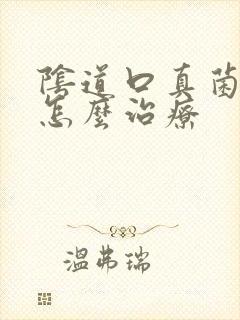 陰道口真菌
怎麼治療
溫弗瑞